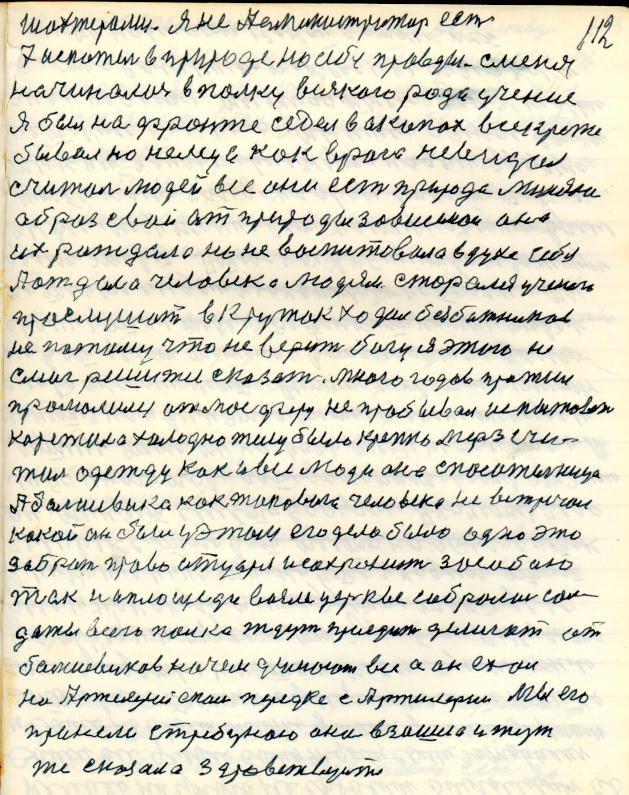 112
шахтерами. Я не Администратор есть
Я испотел в природе на себе правды. с меня
начиналоя в полку всякого рода учение
Я был на фронте седел в акопах все
бывал но немца как врага невидел
считал людей все они есть природа
образ свой от природы зависимой она
их раждала но не воспитовала в духе себя
Я аждала человека людям старался ученого
прослушат в кружок ходил безбажников
не потому что не верит богу я этого не
смог решити сказат. много годов прожил
промолили от мое не пробывал испытоват
холодно телу было крепко мерз счи-
тал одежду как и все люди она спосательница
А большевика как такового человека не встречал
какой он был у этом его дело было одно это
забрат право от царя и сохранит за собою
так на площеди возле церкве собрали сол
даты всего полка ждут приедит делигат от
бальшевиков начем думают все а он ехал
на Артелерийском передке с Артилерии Мы его
привели с трибуною она взашла и тут
же сказала здравствуйте